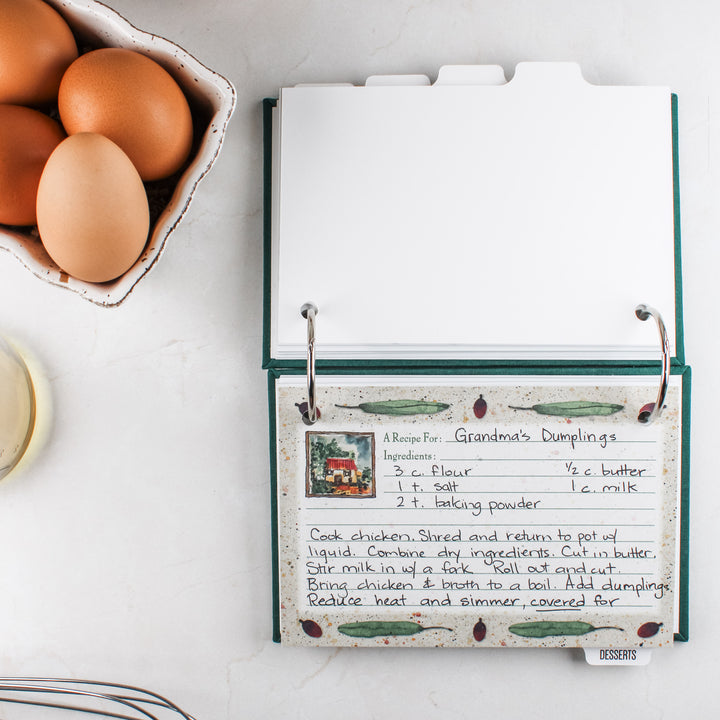 A Recipe For: Grandma's Dumplings
Ingredients:
3 c. flour ½ c. butter
1 t. salt 1 c. milk
2 t. baking powder
Cook chicken. Shred and return to pot w/
liquid. Combine dry ingredients. Cut in butter.
Stir milk in w/ a fork. Roll out and cut.
Bring chicken & broth to a boil. Add dumplings.
Reduce heat and simmer, covered for
DESSERTS